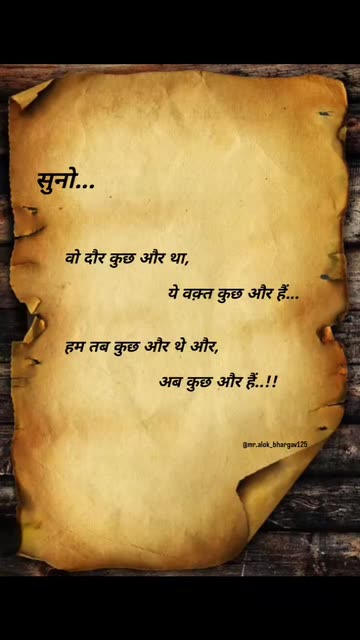 सुनो...
वो दौर कुछ और था,
ये वक़्त कुछ और हैं...
हम तब कुछ और थे और,
अब कुछ और हैं..!!
@mr.alok_bhargav125